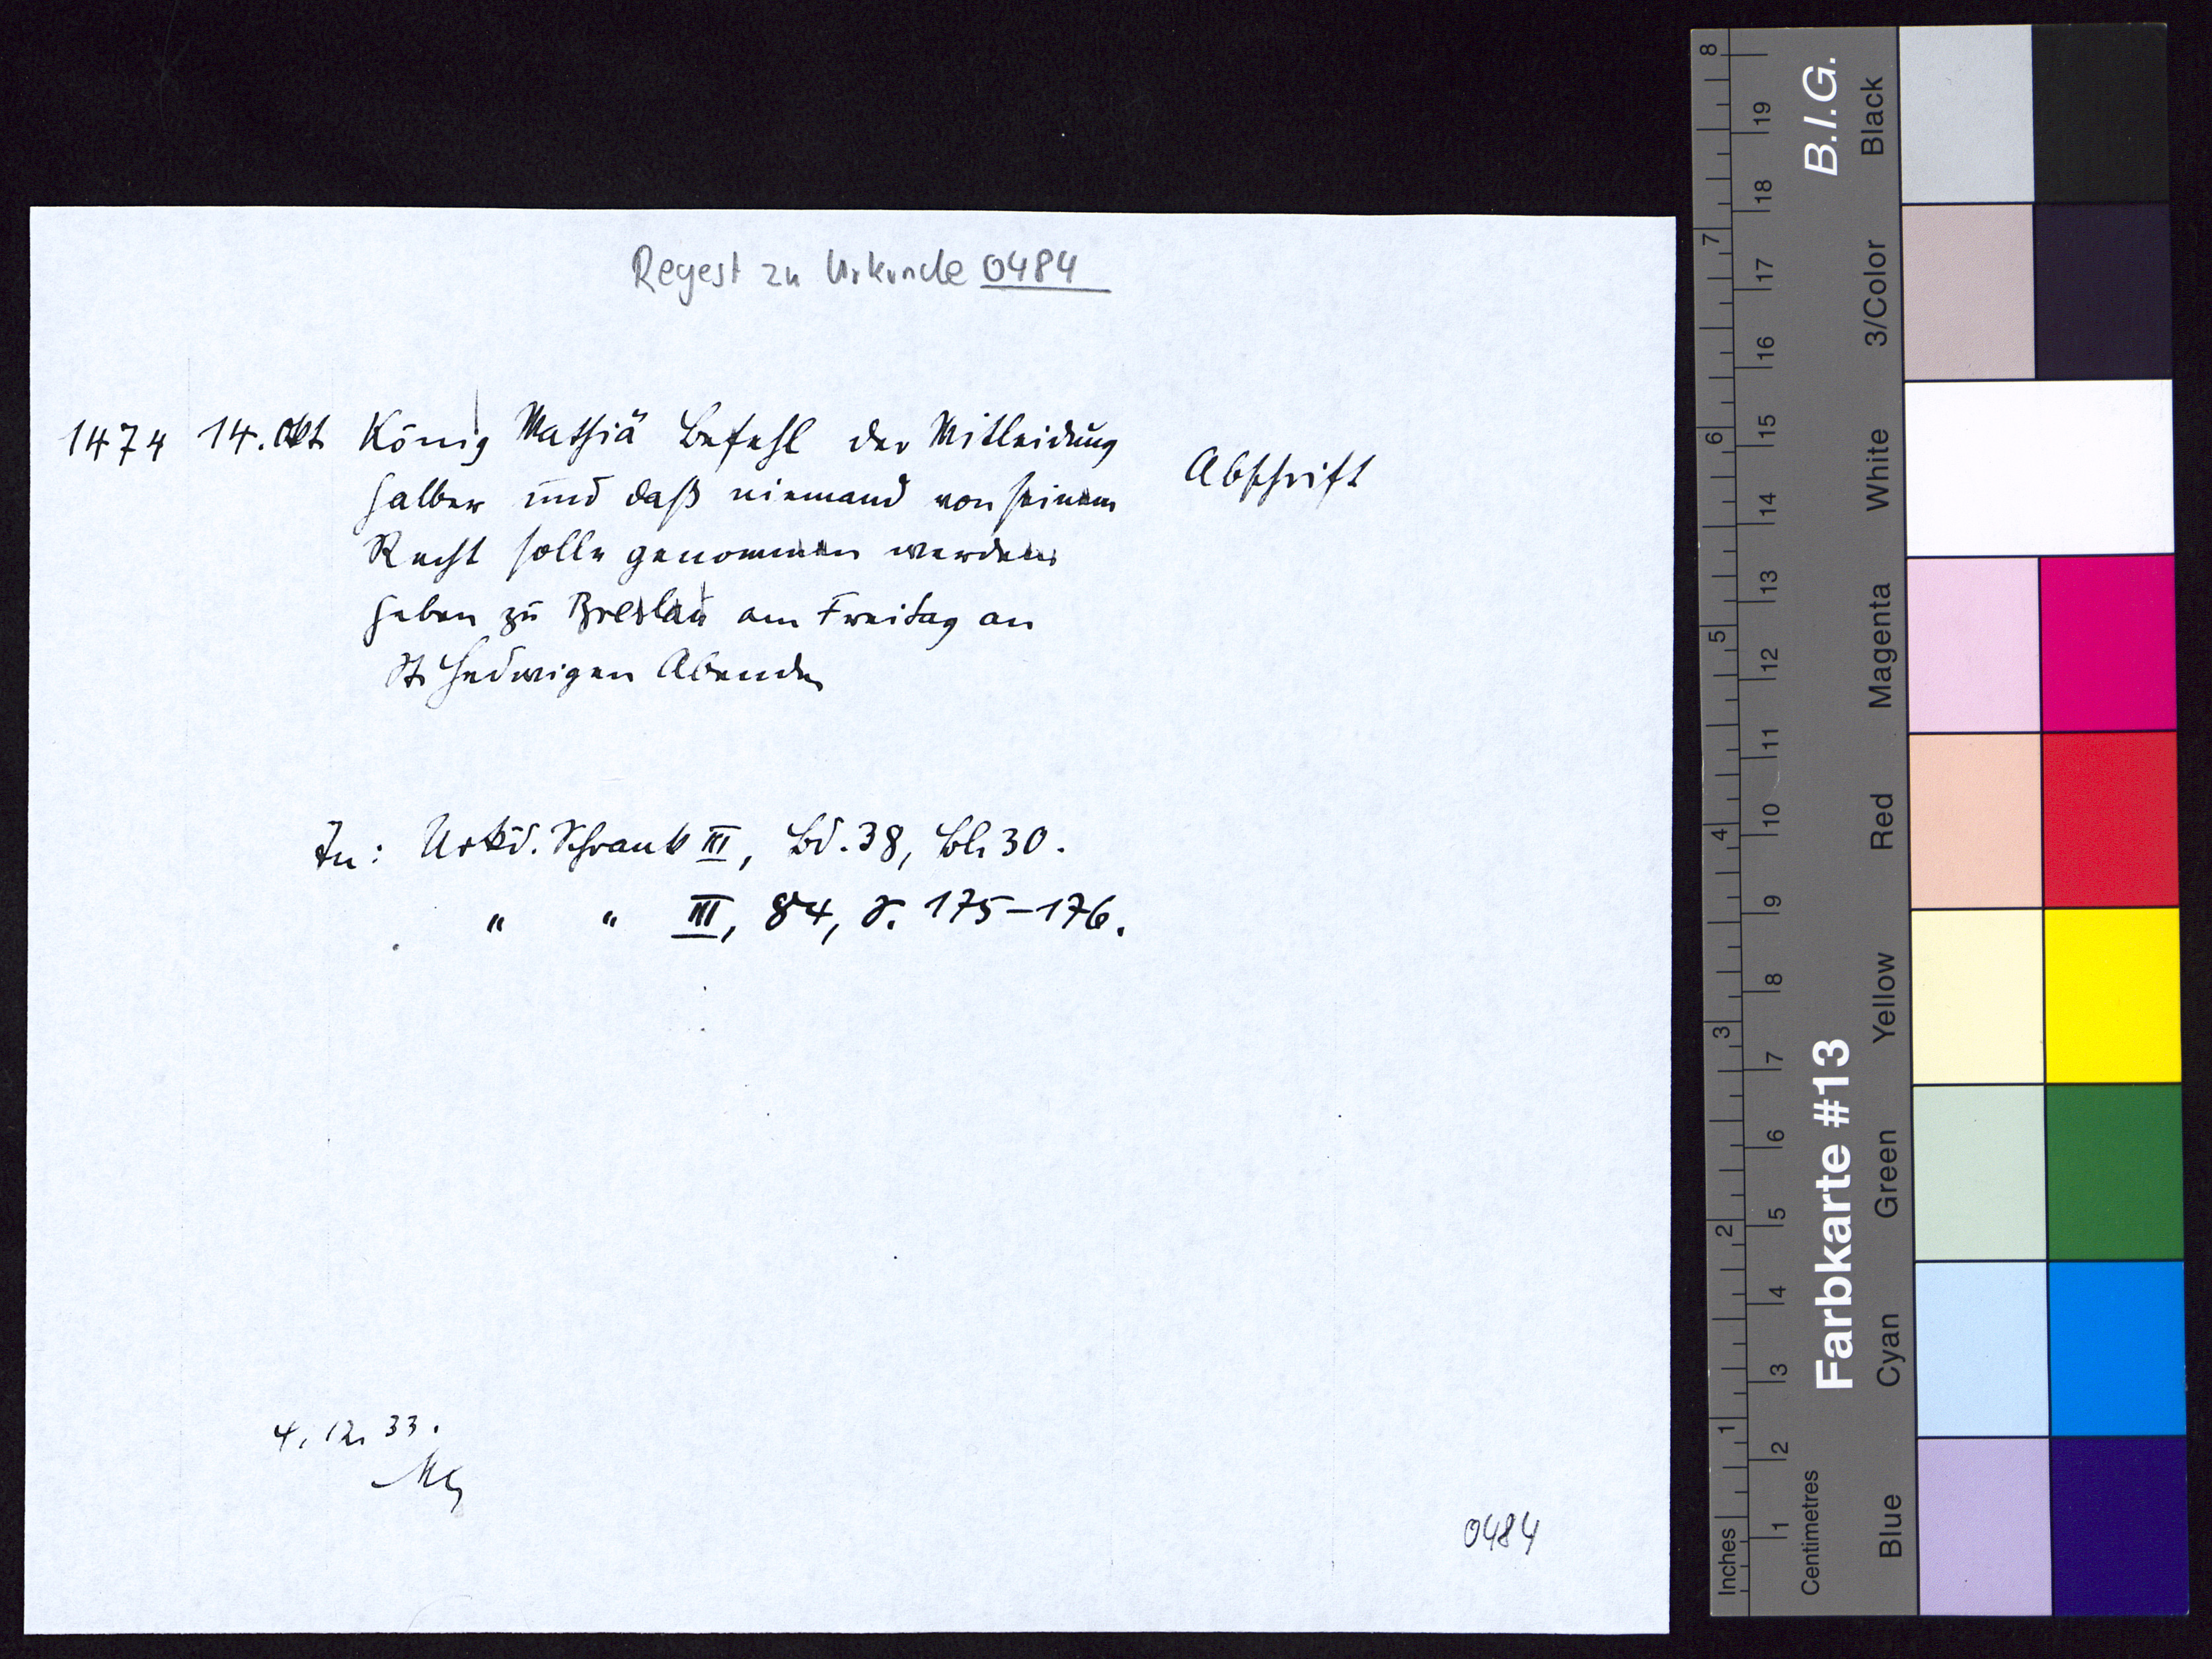 Regest zu Urkunde 0484
1474 14. Okt. König Mathiä Befehl der Mitleidung
halber und daß niemand von seinem
Recht solle genommen werden
Geben zu Breslau am Freitag an
St. Hedwigen Abende
Abschrift
In: Urkd. Schrank III, Bd. 38, Bl. 30.
" " III, 84, S. 175-176.
4. 12. 33.
0484
8 7 6 5 4 3 2 1 Inches
19 18 17 16 15 14 13 12 11 10 9 8 7 6 5 4 3 2 1 Centimetres
B.I.G.
Farbkarte #13
Black
3/Color
White
Magenta
Red
Yellow
Green
Cyan
Blue